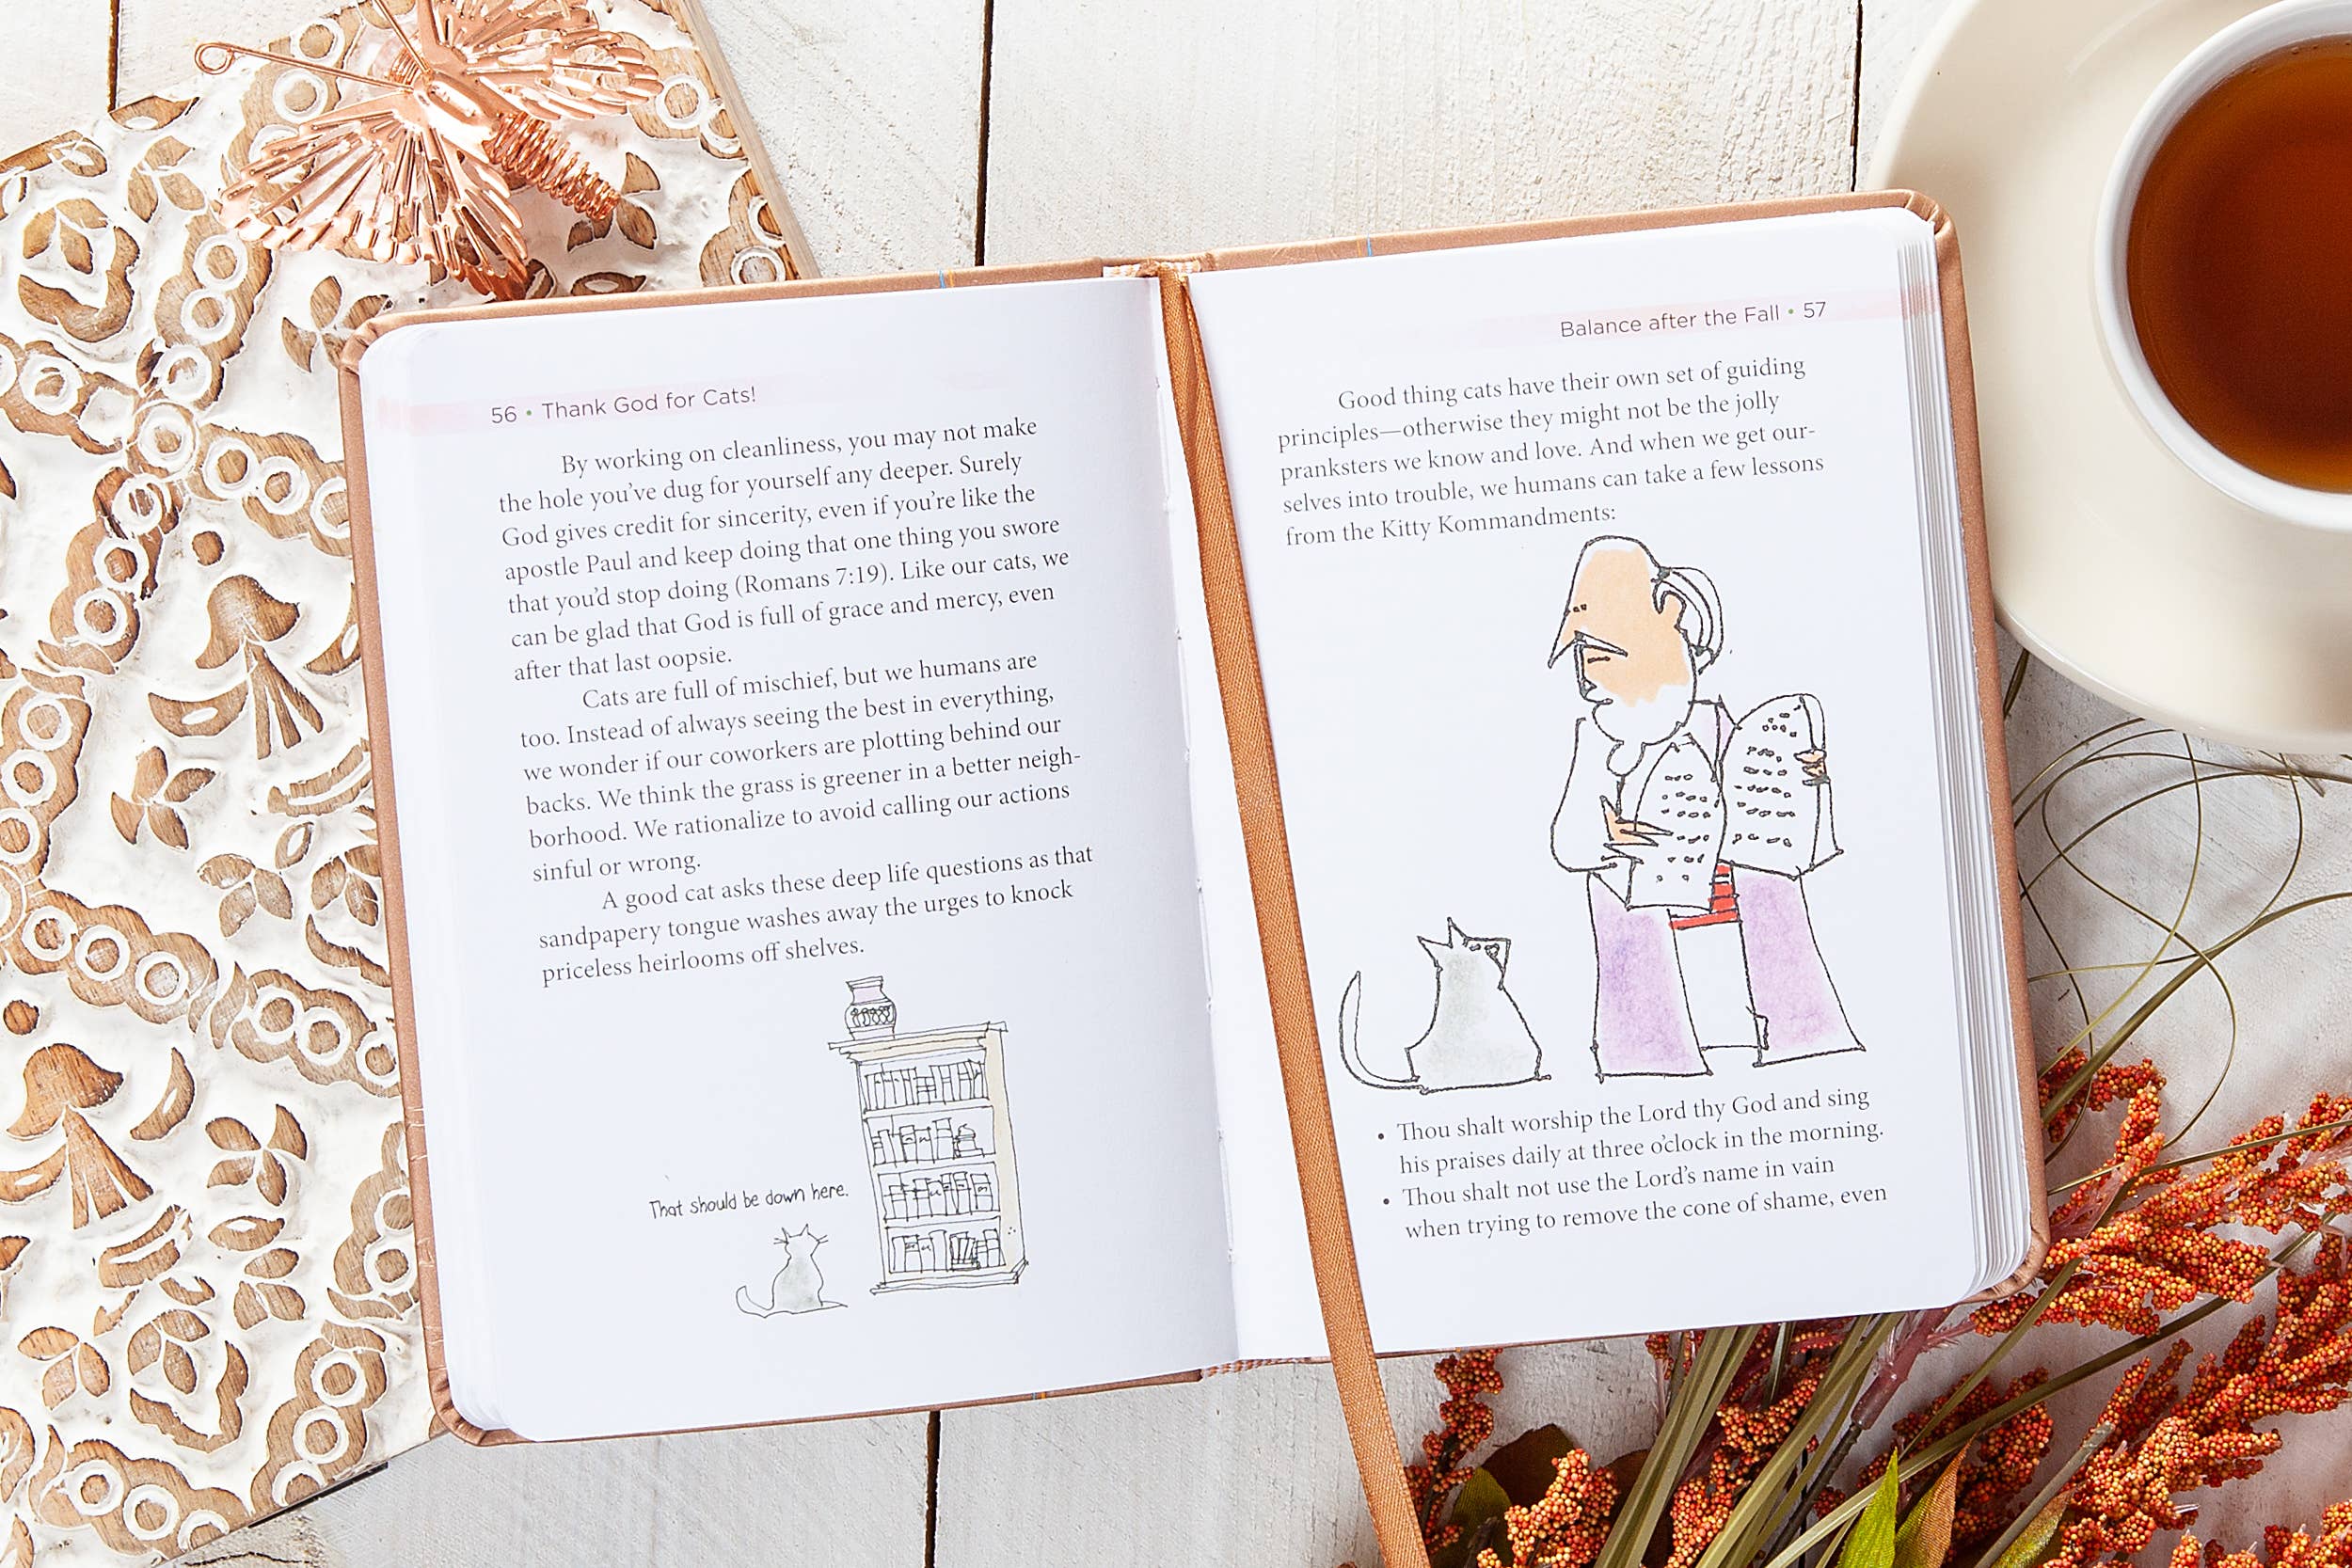 56 • Thank God for Cats!
By working on cleanliness, you may not make
the hole you’ve dug for yourself any deeper. Surely
God gives credit for sincerity, even if you’re like the
apostle Paul and keep doing that one thing you swore
that you’d stop doing (Romans 7:19). Like our cats, we
can be glad that God is full of grace and mercy, even
after that last oopsie.
Cats are full of mischief, but we humans are
too. Instead of always seeing the best in everything,
we wonder if our coworkers are plotting behind our
backs. We think the grass is greener in a better neigh-
borhood. We rationalize to avoid calling our actions
sinful or wrong.
A good cat asks these deep life questions as that
sandpapery tongue washes away the urges to knock
priceless heirlooms off shelves.
That should be down here.
Balance after the Fall • 57
Good thing cats have their own set of guiding
principles—otherwise they might not be the jolly
pranksters we know and love. And when we get our-
selves into trouble, we humans can take a few lessons
from the Kitty Kommandments:
• Thou shalt worship the Lord thy God and sing
his praises daily at three o’clock in the morning.
• Thou shalt not use the Lord’s name in vain
when trying to remove the cone of shame, even